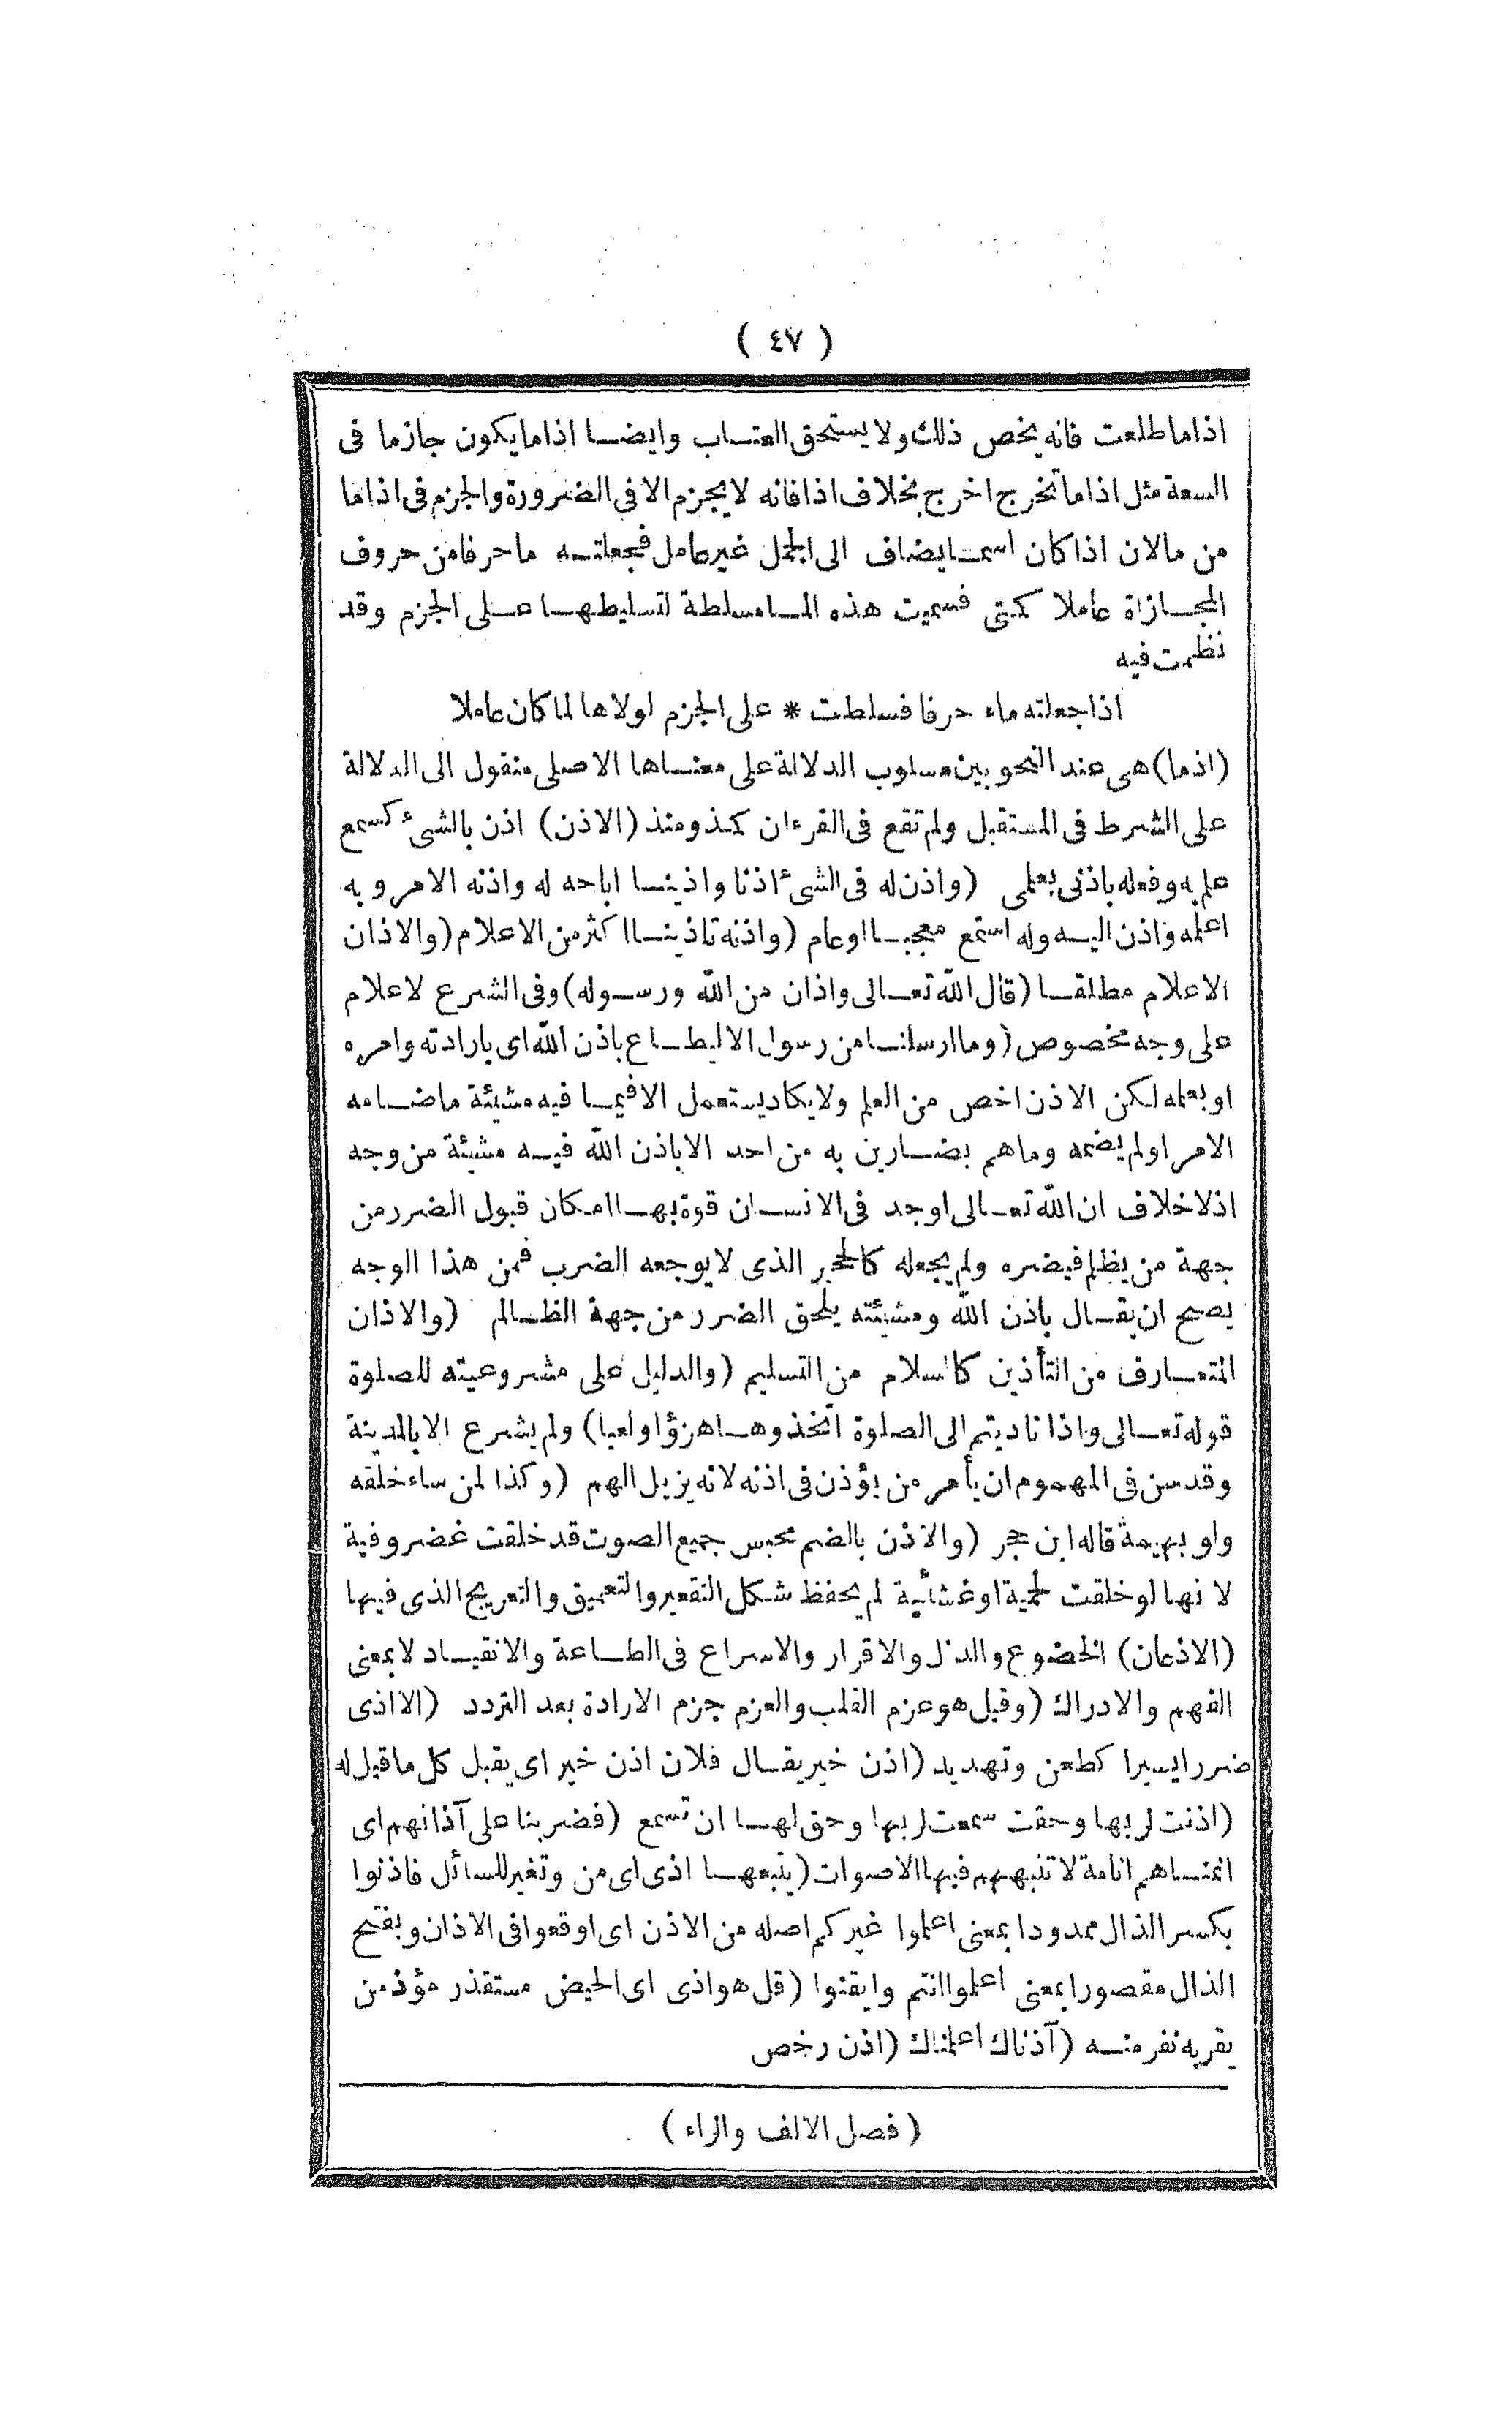 ( ٤٧ )
اذاما طلعت فانه يخص ذلك ولا يستحق العتاب وايضا اذاما يكون جازما فى
السعة مثل اذاما تخرج اخرج بخلاف اذا فانه لا يجزم الا فى الضرورة والجزم فى اذاما
من مالان اذا كان اسما يضاف الى الجمل غير عامل فجعلته ما حرفا من حروف
المجازاة عاملا كمتى فسميت هذه الما مسلطة لتسليطها على الجزم وقد
نظمت فيه
اذا جعلته ماء حرفا فسلطت * على الجزم لولاها لما كان عاملا
(اذما) هى عند النحويين مسلوب الدلالة على معناها الاصلى منقول الى الدلالة
على الشرط فى المستقبل ولم تقع فى القرءان كمذ ومنذ (الاذن) اذن بالشىء كسمع
علم به وفعله باذنى بعلمى (واذن له فى الشىء اذنا واذينا اباحه له واذنه الامر وبه
اعلمه واذن اليه وله استمع معجبا او عام (واذنه تاذينا اكثر من الاعلام (والاذان
الاعلام مطلقا (قال الله تعالى واذان من الله ورسوله) وفى الشرع لاعلام
على وجه مخصوص (وما ارسلنا من رسول الا ليطاع باذن الله اى بارادته وامره
او بعلمه لكن الاذن اخص من العلم ولا يكاد يستعمل الا فيما فيه مشيئة ما ضامه
الامر او لم يضمه وما هم بضارين به من احد الا باذن الله فيه مشيئة من وجه
اذ لا خلاف ان الله تعالى اوجد فى الانسان قوة بها امكان قبول الضرر من
جهة من يظلم فيضره ولم يجعله كالحجر الذى لا يوجعه الضرب فمن هذا الوجه
يصح ان يقال باذن الله ومشيئته يلحق الضرر من جهة الظالم (والاذان
المتعارف من التأذين كالسلام من التسليم (والدليل على مشروعيته للصلوة
قوله تعالى واذا ناديتم الى الصلوة اتخذوها هزؤا ولعبا) ولم يشرع الا بالمدينة
وقد سن فى المهموم ان يأمر من يؤذن فى اذنه لانه يزيل الهم (وكذا لمن ساء خلقه
ولو بهيمة قاله ابن حجر (والاذن بالضم محبس جميع الصوت قد خلقت غضروفية
لانها لو خلقت لحمية او غشائية لم يحفظ شكل التقعير والتعميق والتعريج الذى فيها
(الاذعان) الخضوع والذل والاقرار والاسراع فى الطاعة والانقياد لا بمعنى
الفهم والادراك (وقيل هو عزم القلب والعزم جزم الارادة بعد التردد (الا اذى
ضررا يسيرا كطعن وتهديد (اذن خير يقال فلان اذن خير اى يقبل كل ما قيل له
(اذنت لربها وحقت سمعت لربها وحق لها ان تسمع (فضربنا على آذانهم اى
انمناهم انامة لا تنبههم فيها الاصوات (يتبعها اذى اى من وتغير للسائل فاذنوا
بكسر الذال ممدودا بمعنى اعلموا غيركم اصله من الاذن اى اوقعوا فى الاذان وبفتح
الذال مقصورا بمعنى اعلموا انتم وايقنوا (قل هو اذى اى الحيض مستقذر مؤذ من
يقربه نفر منه (آذناك اعلمناك (اذن رخص
(فصل الالف والراء)